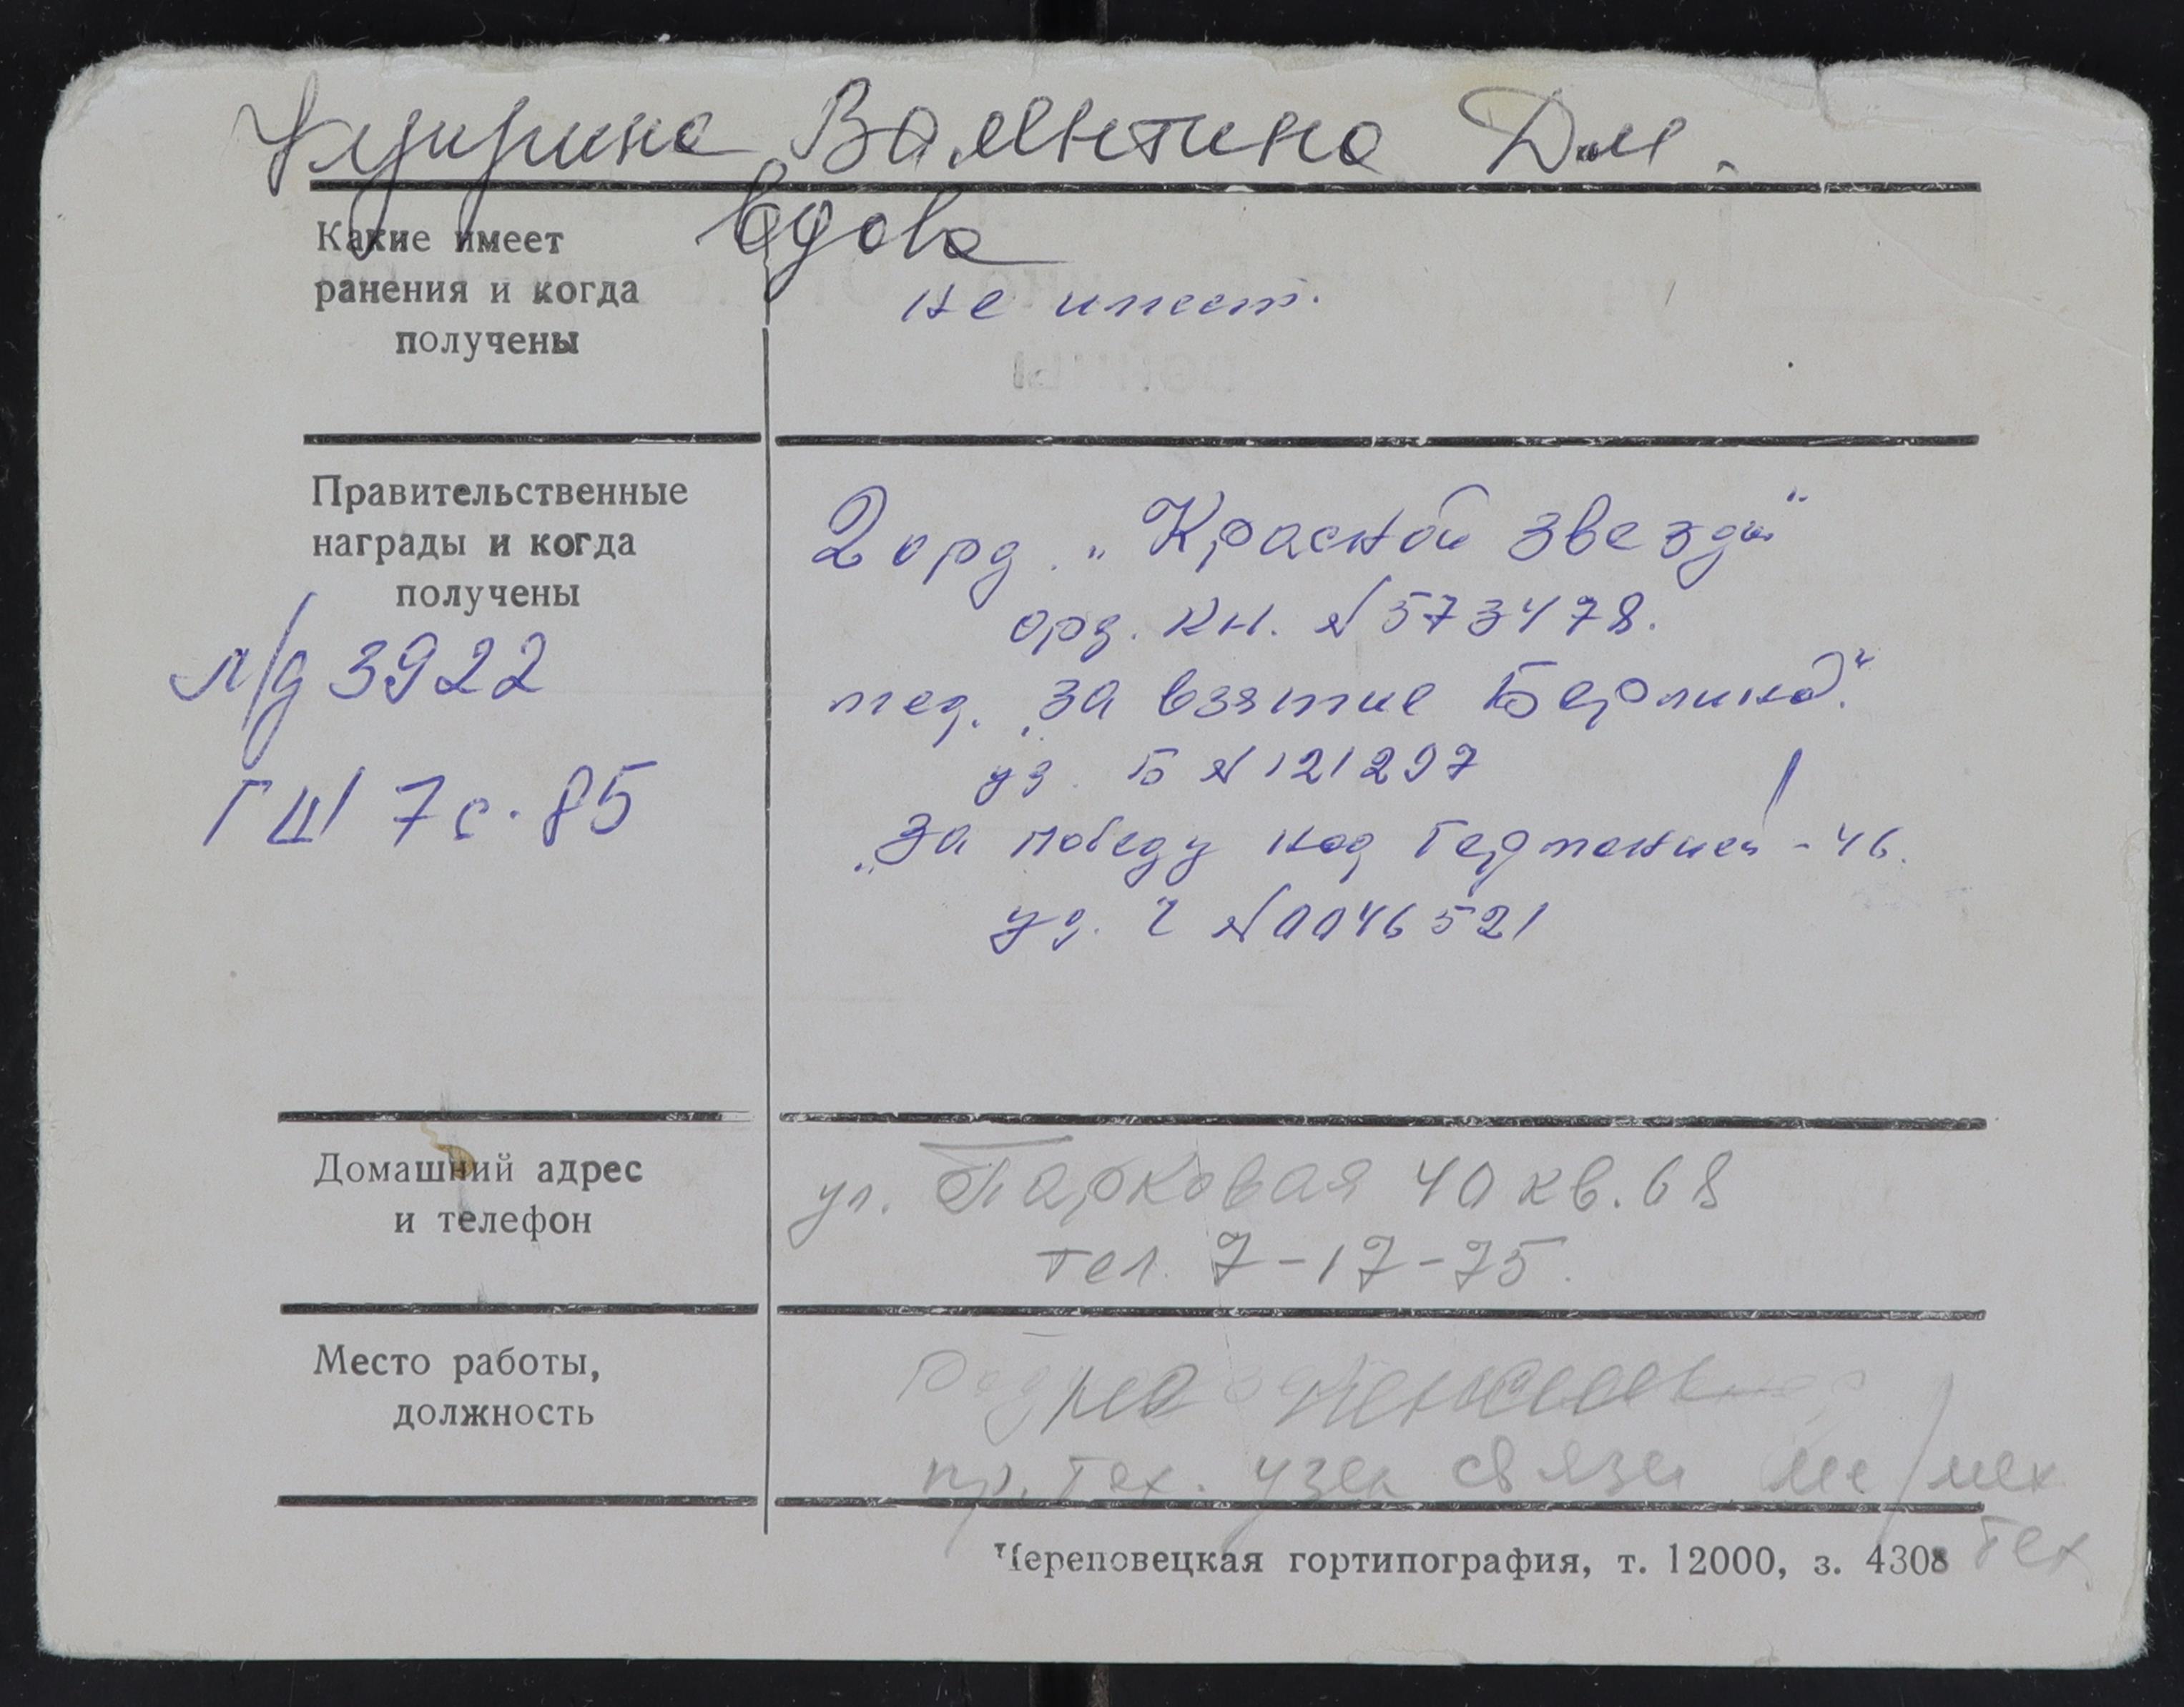 Валентина Дм.
вдова
Какие имеет
ранения и когда
получены
не имеет.
Правительственные
награды и когда
получены
л/д 3922
ГШ 7с.85
2 орд. „Красной звезды"
орд. кн. № 573478.
мед. „За взятие Берлина".
уд. Б № 121297
„За победу над Германией" - 46.
уд. Ч № 0046521
Домашний адрес
и телефон
ул. Парковая 40 кв. 68
тел. 7-17-75.
Место работы,
должность
пр. тех. узел связи
тех
Череповецкая гортипография, т. 12000, з. 4308